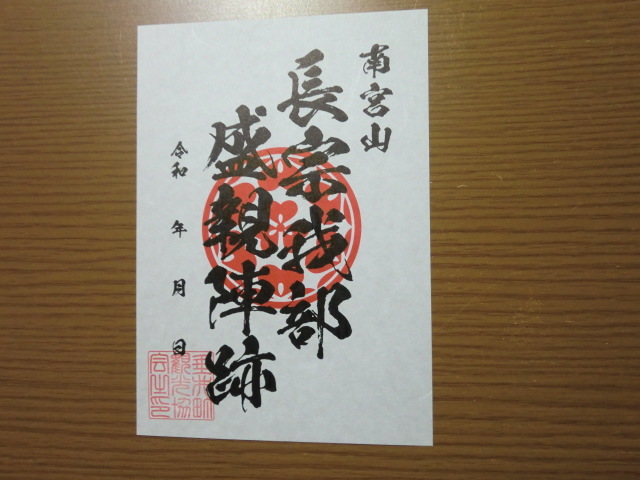 南宮山
長宗我部
盛親陣跡
令和 年 月 日
垂井町
観光協
会之印